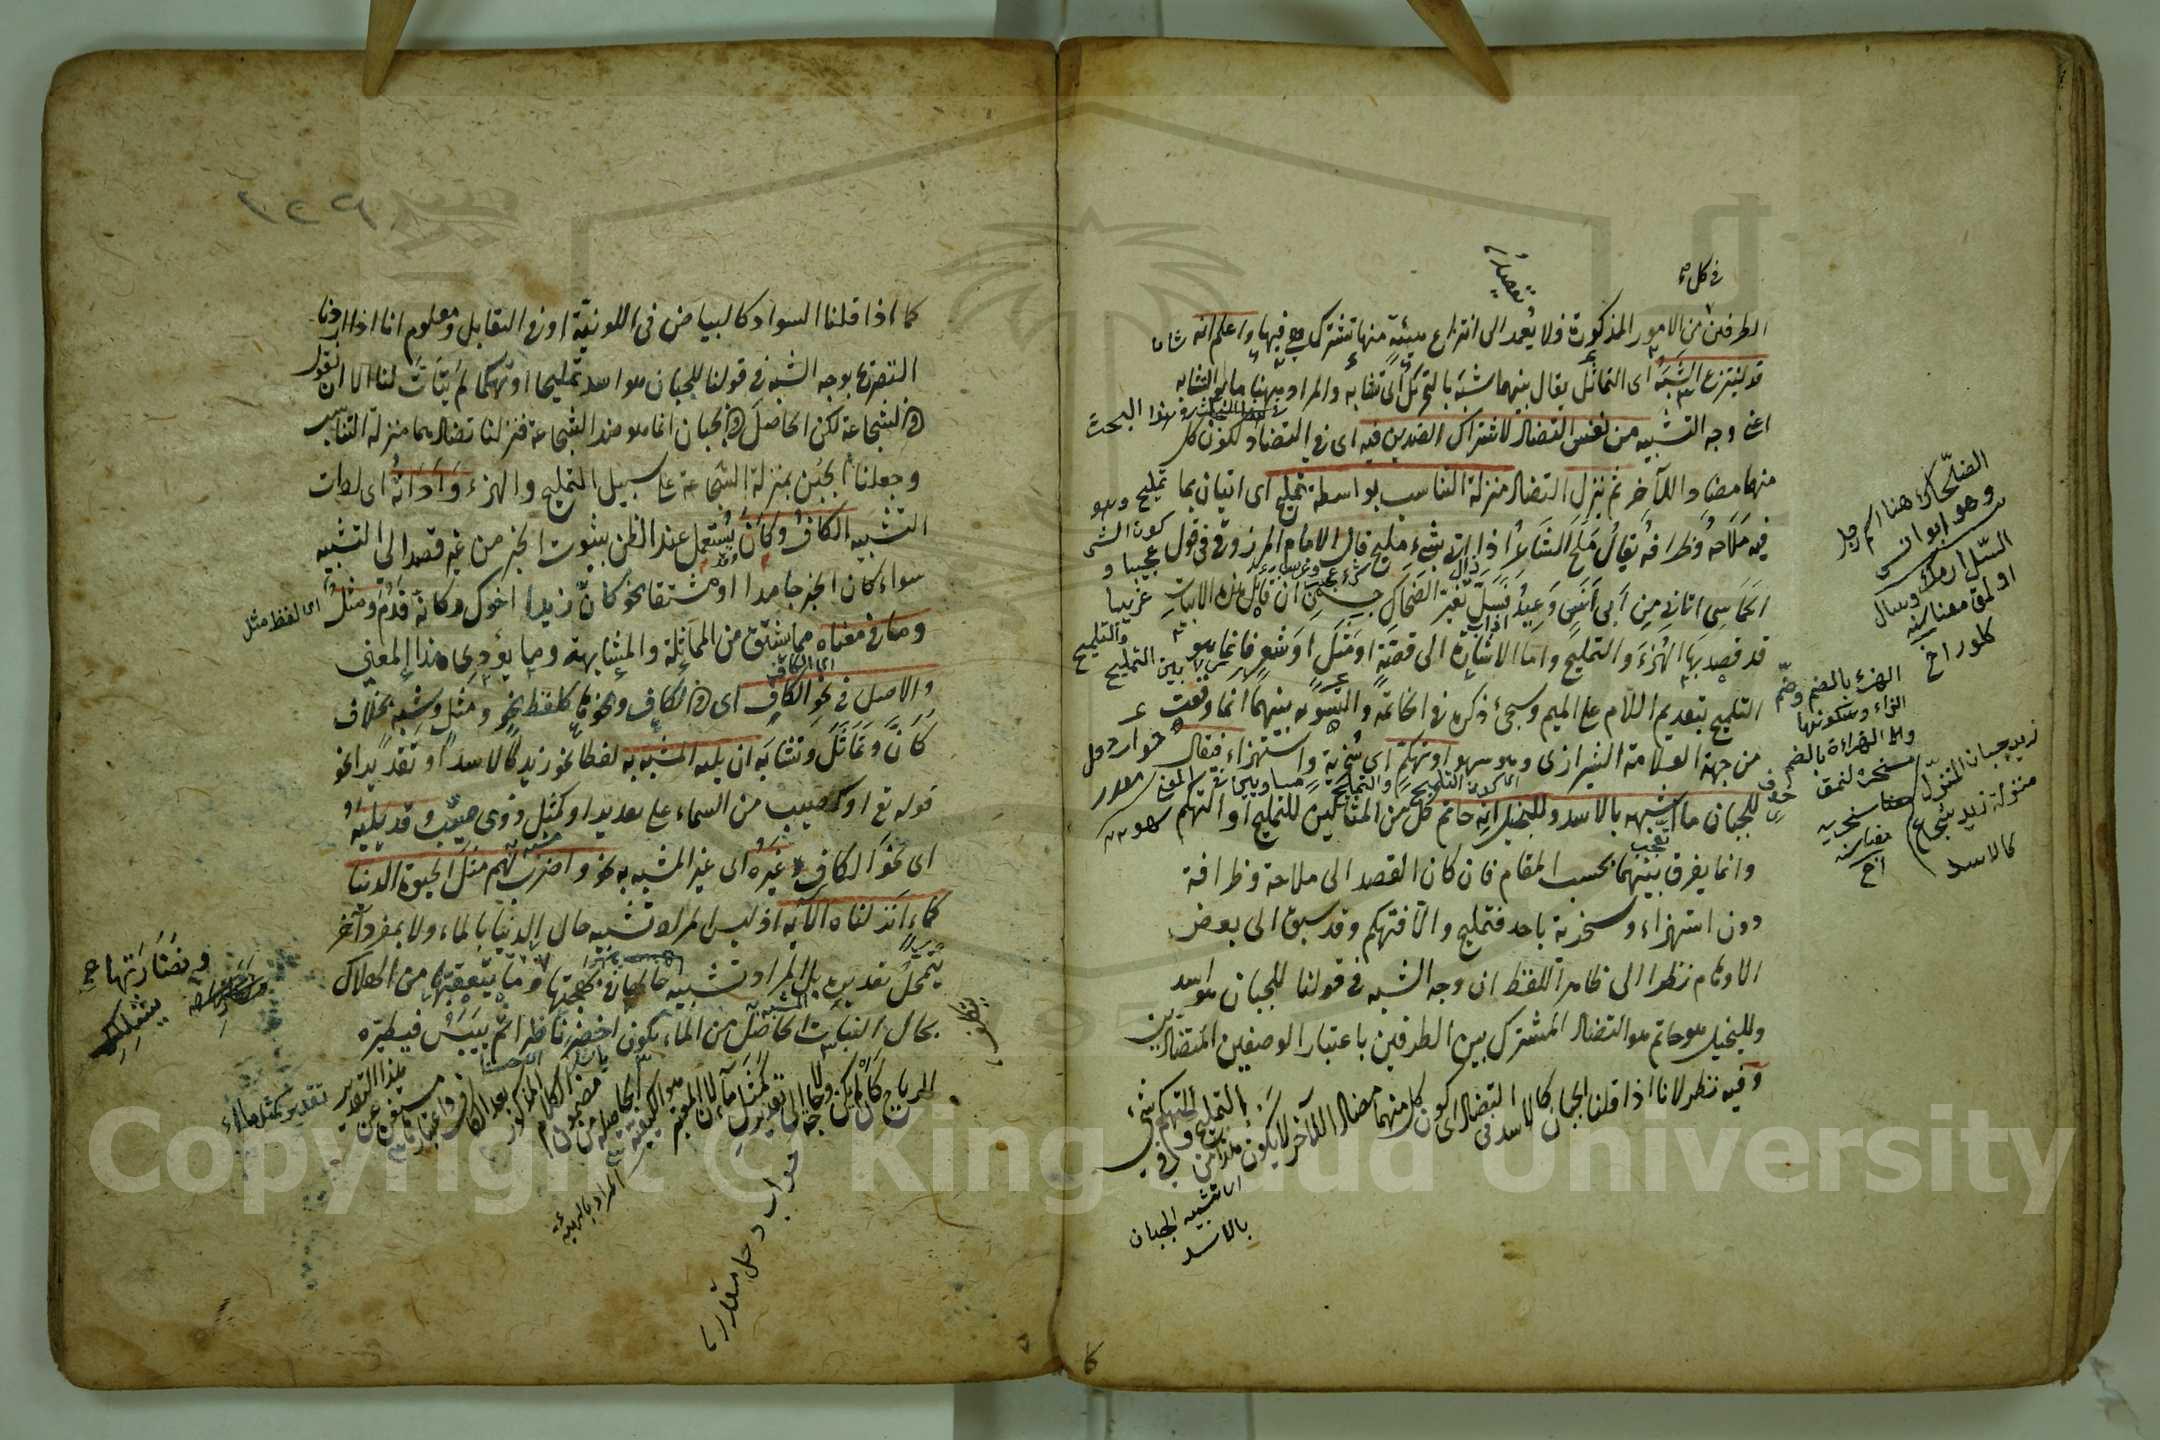 في كل
الطرفين من الامور المذكورة فلا يعمد الى انتزاع هيئة منها تشترك هي فيها واعلم انه
قد ينتزع الشبه اى التماثل يقال بينهما شبه بالتحريك اى تشابه والمراد ههنا ما به التشابه
اعنى وجه التشبيه من نفس التضاد لاشتراك الضدين فيه اى في التضاد لكون كل
منهما مضادا للآخر ثم ينزل التضاد منزلة التناسب بواسطة تمليح اى اتيان بما
فيه ملاحة وظرافة يقال ملح الشاعر اذا اتى بشىء مليح قال الامام المرزوقى في قول
الحماسى اتانى من ابى انس وعيد فسل تغيظ الضحاك جسمى ان قائل هذه الابيات
قد قصد بها الهزء والتمليح واما الاشارة الى قصة او مثل او شعر فانما هو
التلميح بتقديم اللام على الميم وسيجئ ذكره في الخاتمة والتسوية بينهما انما وقعت
من جهة العلامة الشيرازى وهو سهو او تهكم اى سخرية واستهزاء فيقال
للجبان ما اشبهه بالاسد وللبخيل انه حاتم كل من المثالين للتمليح او التهكم
وانما يفرق بينهما بحسب المقام فان كان القصد الى ملاحة وظرافة
دون استهزاء وسخرية باحد فتمليح والا فتهكم وقد سبق الى بعض
الاوهام نظرا الى ظاهر اللفظ ان وجه الشبه في قولنا للجبان هو اسد
وللبخيل هو حاتم هو التضاد المشترك بين الطرفين باعتبار الوصفين المتضادين
وفيه نظر لانا اذا قلنا الجبان كالاسد في التضاد اى كون كل منهما مضادا للآخر لا يكون هذا من التمليح والتهكم في شىء
الضحاك هنا اسم رجل
وهو ابو انس
الهزء بالضم وضم
الزاء وسكونها
زيد جبان المنزل
منزلة زيد شجاع
كالاسد
اى تشبيه الجبان
بالاسد
كما اذا قلنا السواد كالبياض في اللونية او في التقابل ومعلوم انا اذا اردنا
التصريح بوجه الشبه في قولنا للجبان هو اسد تمليحا او تهكما لم يتأت لنا الا ان نقول
في الشجاعة لكن الحاصل في الجبان انما هو ضد الشجاعة فنزلنا تضادهما منزلة التناسب
وجعلنا الجبن بمنزلة الشجاعة على سبيل التمليح والهزء واداته اى ادات
التشبيه الكاف وكان وقد يستعمل عند الظن بثبوت الخبر من غير قصد الى التشبيه
سواء كان الخبر جامدا او مشتقا نحو كان زيدا اخوك وكانه قدم ومثل
اى لفظ مثل
وما في معناه مما يشتق من المماثلة والمشابهة وما يؤدى هذا المعنى
والاصل في نحو الكاف اى في الكاف ونحوها كلفظ نحو ومثل وشبه بخلاف
كان وتماثل وتشابه ان يليه المشبه به لفظا نحو زيد كالاسد او تقديرا نحو
قوله تع او كصيب من السماء على تقدير او كمثل ذوى صيب وقد يليه
اى نحو الكاف غيره اى غير المشبه به نحو واضرب لهم مثل الحيوة الدنيا
كماء انزلناه الآية اذ ليس المراد تشبيه حال الدنيا بالماء ولا بمفرد آخر
يتمحل تقديره بل المراد تشبيه حالها في بهجتها وما يتعقبها من الهلاك
بحال النبات الحاصل من الماء يكون اخضر ناظرا ثم ييبس فيطيره
الرياح كان لم يكن ولا حاجة الى تقدير كمثل ماء لان المعتبر هو الكيفية الحاصلة من مضمون الكلام المذكور بعد الكاف واعتبارها مستغن عن هذا التقدير
المراد بالهيئة
جواب دخل مقدر